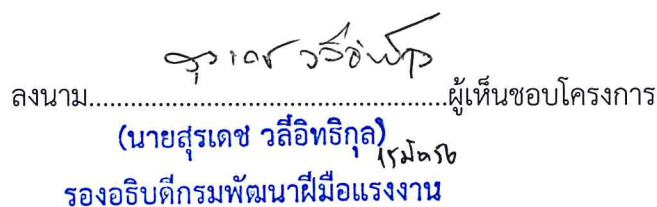 สุรเดช วลีอิทธิกุล
ลงนาม..................................................ผู้เห็นชอบโครงการ
(นายสุรเดช วลีอิทธิกุล)
รองอธิบดีกรมพัฒนาฝีมือแรงงาน